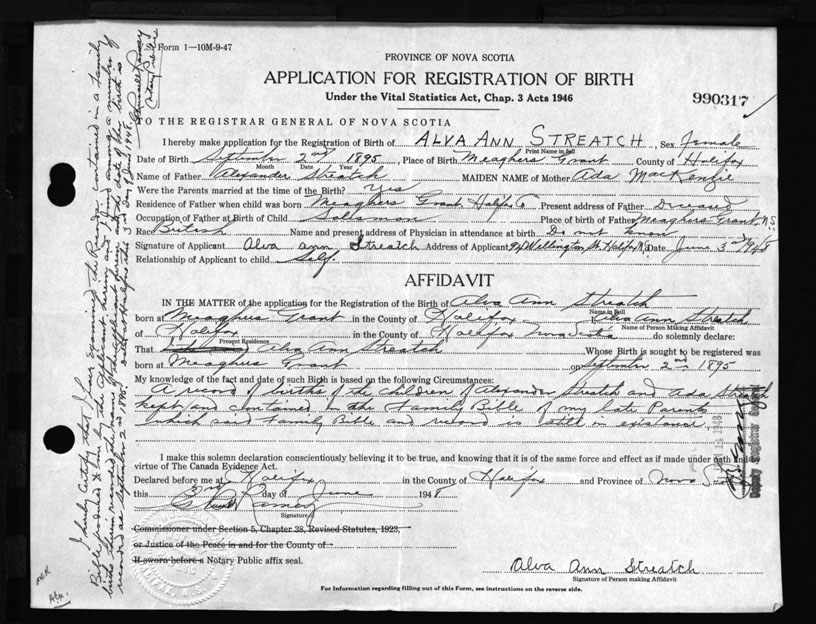 V.S. Form 1—10M-9-47
PROVINCE OF NOVA SCOTIA
APPLICATION FOR REGISTRATION OF BIRTH
Under the Vital Statistics Act, Chap. 3 Acts 1946
990317
TO THE REGISTRAR GENERAL OF NOVA SCOTIA
I hereby make application for the Registration of Birth of ALVA ANN STREATCH, Sex Female
Print Name in full
Date of Birth September 2nd 1895, Place of Birth Meaghers Grant County of Halifax
Month Date Year
Name of Father Alexander Streatch MAIDEN NAME of Mother Ada MacKenzie
Were the Parents married at the time of the Birth? Yes
Residence of Father when child was born Meaghers Grant Halifax Co Present address of Father Deceased
Occupation of Father at Birth of Child Salesman Place of birth of Father Meaghers Grant N.S.
Race British Name and present address of Physician in attendance at birth Do not know
Signature of Applicant Alva Ann Streatch Address of Applicant Wellington St Halifax N.S. Date June 3rd 1948
Relationship of Applicant to child Self.
AFFIDAVIT
IN THE MATTER of the application for the Registration of the Birth of Alva Ann Streatch
Name in Full
born at Meaghers Grant in the County of Halifax Alva Ann Streatch
Name of Person Making Affidavit
of Halifax in the County of Halifax Nova Scotia do solemnly declare:
Present Residence
That Alva Ann Streatch Whose Birth is sought to be registered was
born at Meaghers Grant on September 2nd 1895
My knowledge of the fact and date of such Birth is based on the following Circumstances:
A record of births of the children of Alexander Streatch and Ada
kept and contained in the Family Bible of my late Parents
which said Family Bible and record is still in existence.
I make this solemn declaration conscientiously believing it to be true, and knowing that it is of the same force and effect as if made under oath and by
virtue of The Canada Evidence Act.
Declared before me at Halifax in the County of Halifax and Province of Nova Scotia
this 3rd day of June 1948
Signature
Commissioner under Section 5, Chapter 38, Revised Statutes, 1923,
or Justice of the Peace in and for the County of
If sworn before a Notary Public affix seal.
Alva Ann Streatch
Signature of Person making Affidavit
For Information regarding filling out of this Form, see instructions on the reverse side.
I hereby certify that I have examined the Records contained in a family
Bible produced to me by the Applicant herein and I find among a number of
births therein recorded that of the Applicant herein and the date of the birth is
recorded as September 2nd 1895
Notary Public